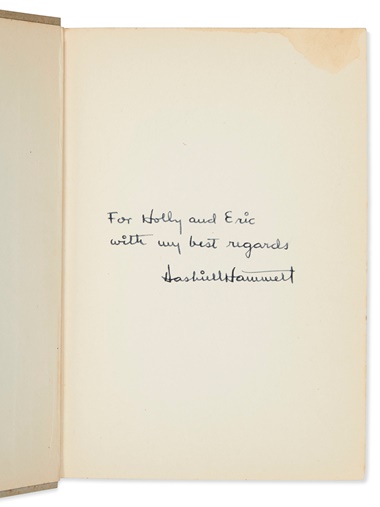 For Holly and Eric
with my best regards
Dashiell Hammett